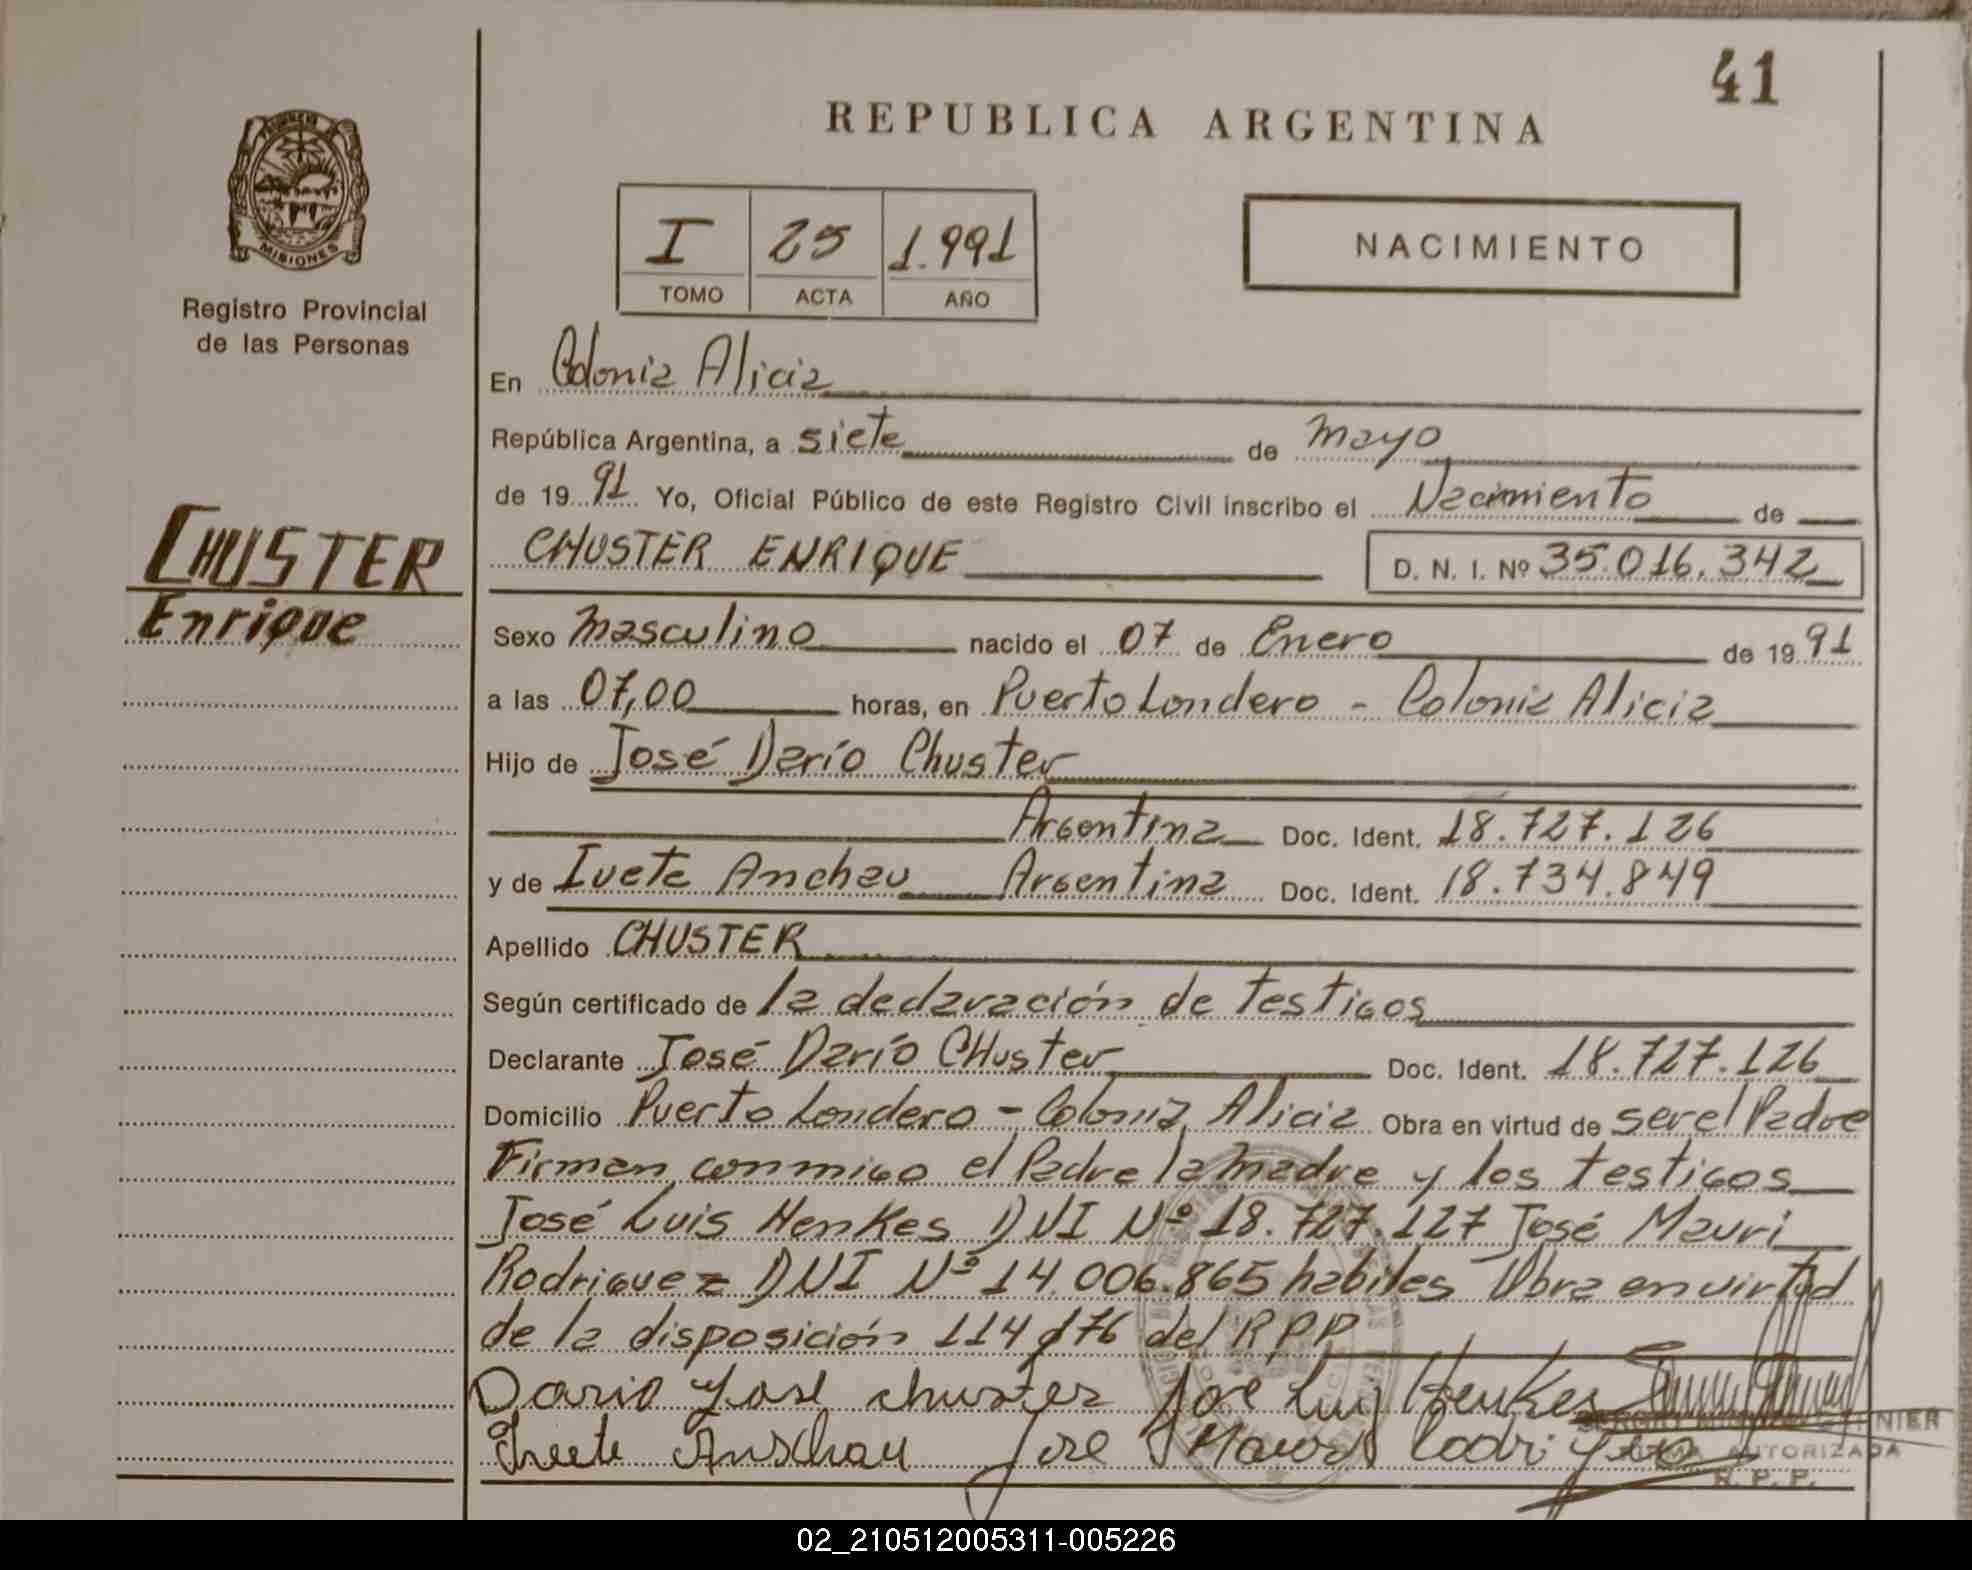 41
REPUBLICA ARGENTINA
MISIONES
Registro Provincial
de las Personas
I 25 1.991
TOMO ACTA AÑO
NACIMIENTO
CHUSTER
Enrique
En Colonia Alicia
República Argentina, a siete de mayo
de 19 91 Yo, Oficial Público de este Registro Civil inscribo el Nacimiento de
CHUSTER ENRIQUE D. N. I. Nº 35.016.342
Sexo masculino nacido el 07 de Enero de 19 91
a las 07,00 horas, en Puerto Londero - Colonia Alicia
Hijo de José Darío Chuster
Argentina Doc. Ident. 18.727.126
y de Ivete Anchau Argentina Doc. Ident. 18.734.849
Apellido CHUSTER
Según certificado de la declaración de testigos
Declarante José Darío CHuster Doc. Ident. 18.727.126
Domicilio Puerto Londero - Colonia Alicia Obra en virtud de ser el Padre
Firman conmigo el Padre la madre y los testigos
José Luis Henkes DNI Nº 18.727.127 José Mauri
Rodriguez DNI Nº 14.006.865 habiles Obra en virtud
de la disposición 114/76 del RPP
Dario José chuster José Luis Henkes
Ivete Anschau José Mauri Rodriguez
AUTORIZADA
R. P. P.
02_210512005311-005226